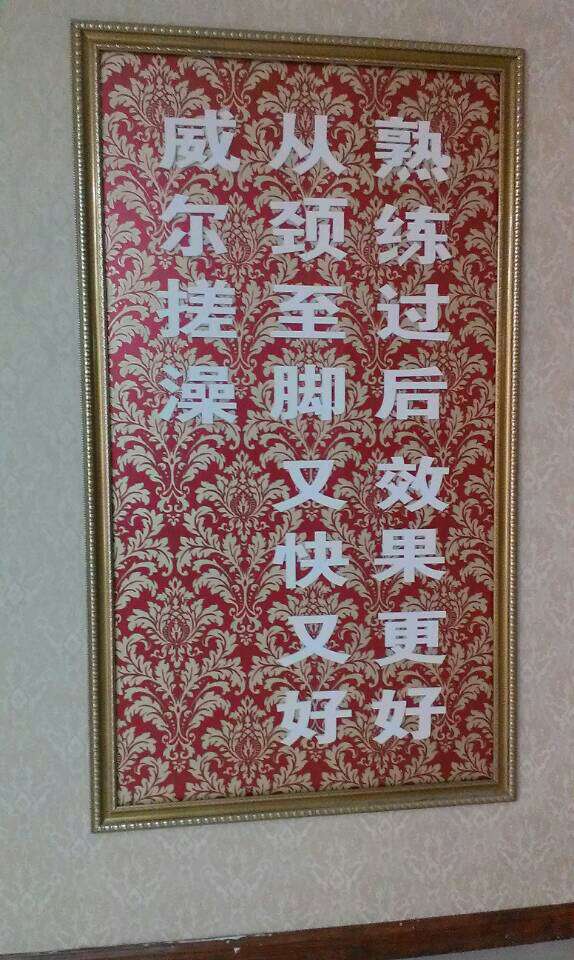 威尔搓澡
从颈至脚又快又好
熟练过后效果更好